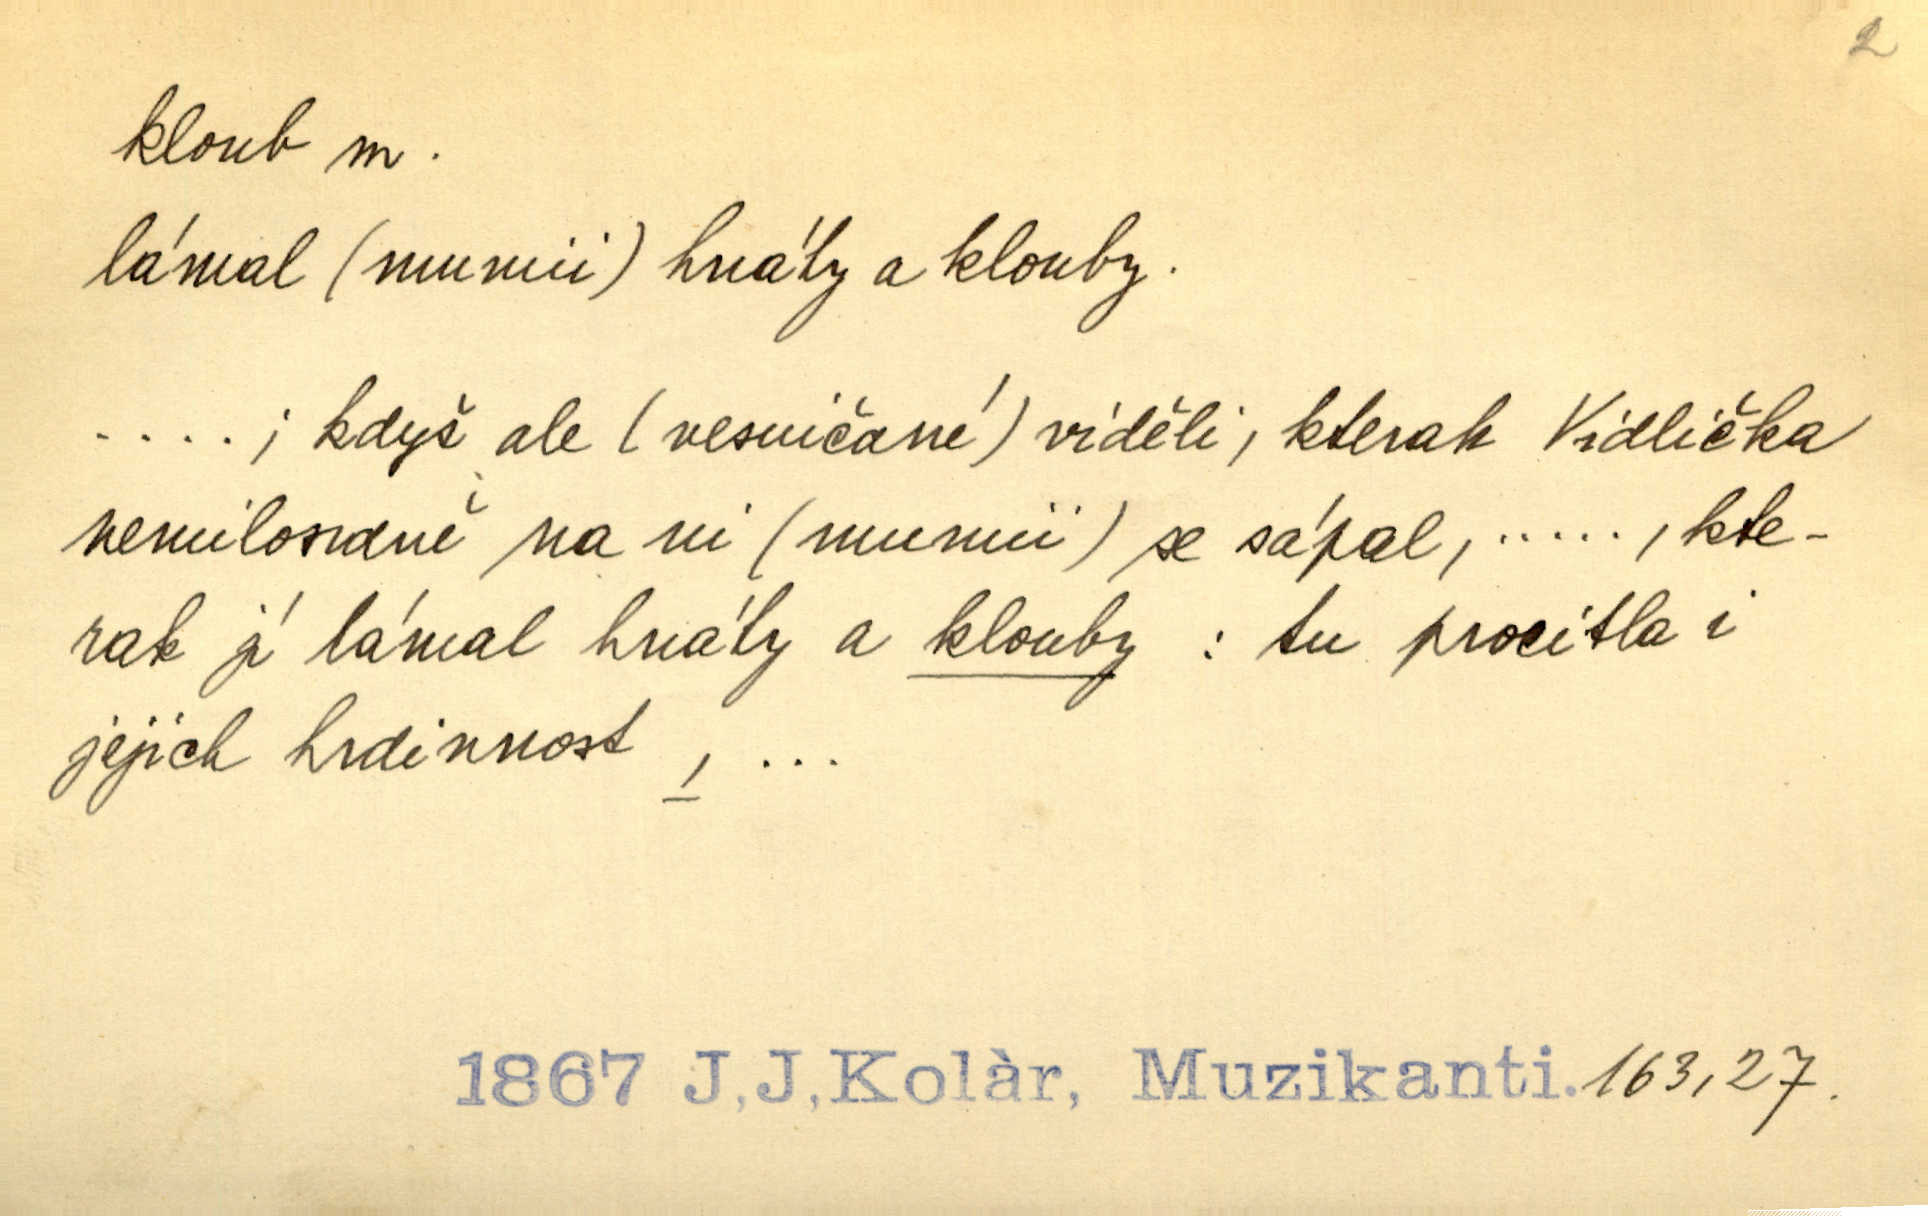 2
kloub m.
lámal (mumii) hnáty a klouby.
. . . . ; když ale (vesničané) viděli, kterak Vidlička
nemilosrdně na ni (mumii) se sápal, ....., kte-
rak jí lámal hnáty a klouby : tu procitla i
jejich hrdinnost , ...
1867 J,J,Kolàr, Muzikanti. 163,27.